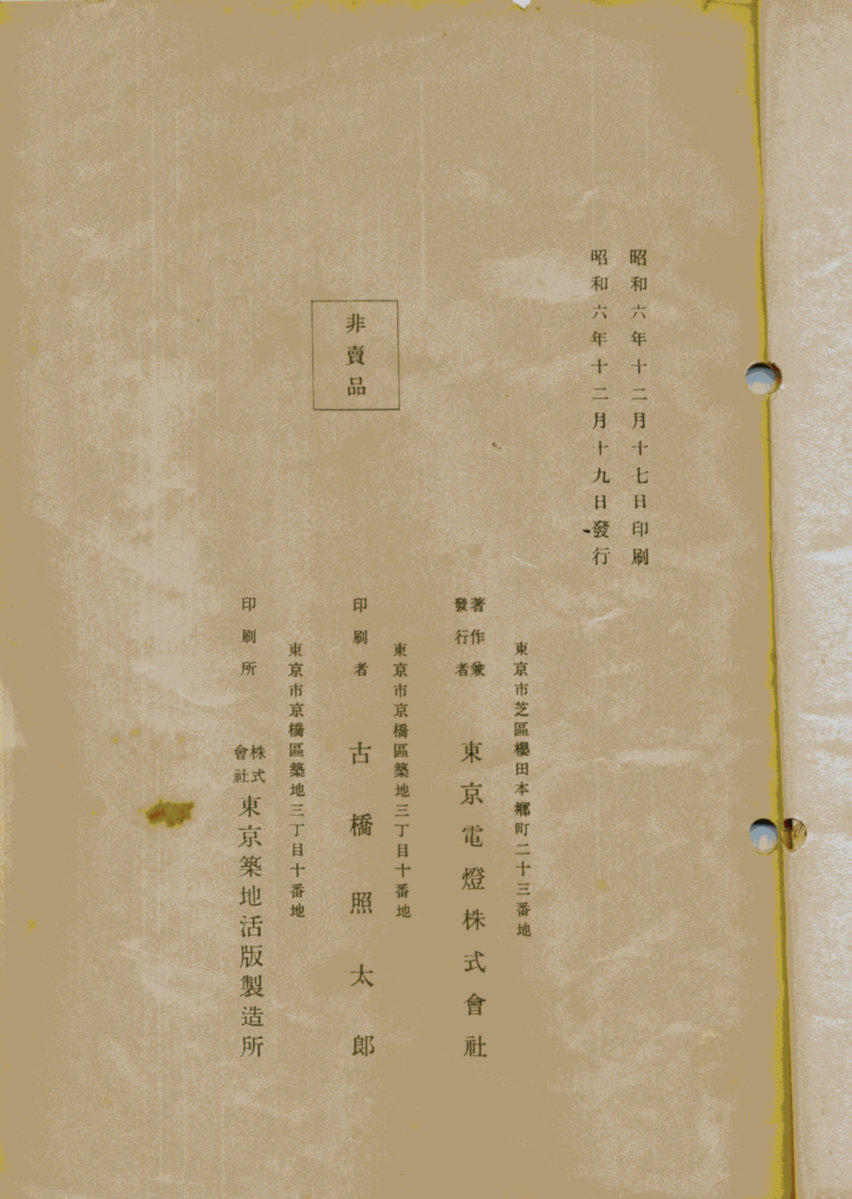 昭和六年十二月十七日印刷
昭和六年十二月十九日發行
東京市芝區櫻田本鄕町二十三番地
著作兼
發行者
東京電燈株式會社
非賣品
東京市京橋區築地三丁目十番地
印刷者
古橋照太郎
東京市京橋區築地三丁目十番地
印刷所
株式
會社
東京築地活版製造所